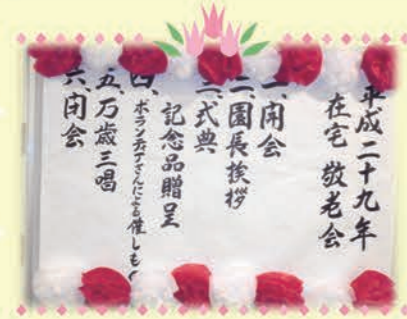 平成二十九年
在宅 敬老会
一、開会
二、園長挨拶
三、式典
記念品贈呈
四、ボランティアさんによる催しもの
五、万歳三唱
六、閉会